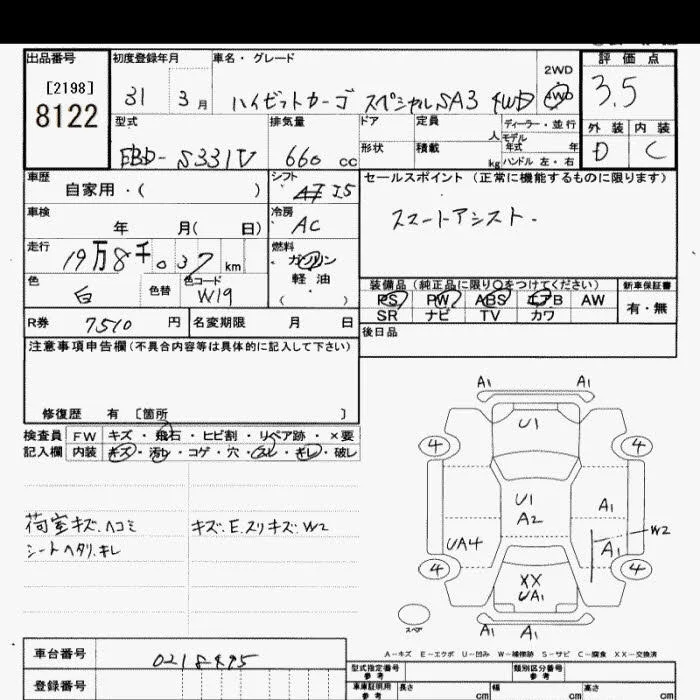 出品番号 初度登録年月 車名・グレード 評価点
[2198]
8122
31 3月 ハイゼットカーゴ スペシャルSA3 4WD 2WD 4WD 3.5
型式 排気量 ドア 定員 人 ディーラー・並行 外装 内装
形状 積載 kg モデル年式 年 ハンドル 左・右
EBD-S331V 660 cc D C
車歴 自家用・( ) シフト AT J5 セールスポイント(正常に機能するものに限ります)
車検 年 月( 日) 冷房 AC スマートアシスト.
走行 19万8千037km 燃料 ガソリン
軽油
( )
色 白 色替 色コード W19
装備品(純正品に限り○をつけてください) 新車保証書
PS PW ABS エアB AW 有・無
SR ナビ TV カワ
R券 7510 円 名変期限 月 日 後日品
注意事項申告欄(不具合内容等は具体的に記入して下さい)
修復歴 有 [箇所 ]
検査員 FW キズ・飛石・ヒビ割・リペア跡・×要
記入欄 内装 キズ・汚レ・コゲ・穴・スレ・キレ・破レ
荷室キズ.ヘコミ キズ.E.スリキズ.W2
シートヘタリ.キレ
A1 A1
U1
4 4
U1
A2 A1
UA4 A1 W2
4 XX 4
UA1
スペア A1 A1
A-キズ E-エクボ U-凹み W-補修跡 S-サビ C-腐食 XX-交換済
車台番号 0218495 型式指定番号 参考 類別区分番号 参考
登録番号 車庫証明用 参考 長さ cm 幅 cm 高さ cm